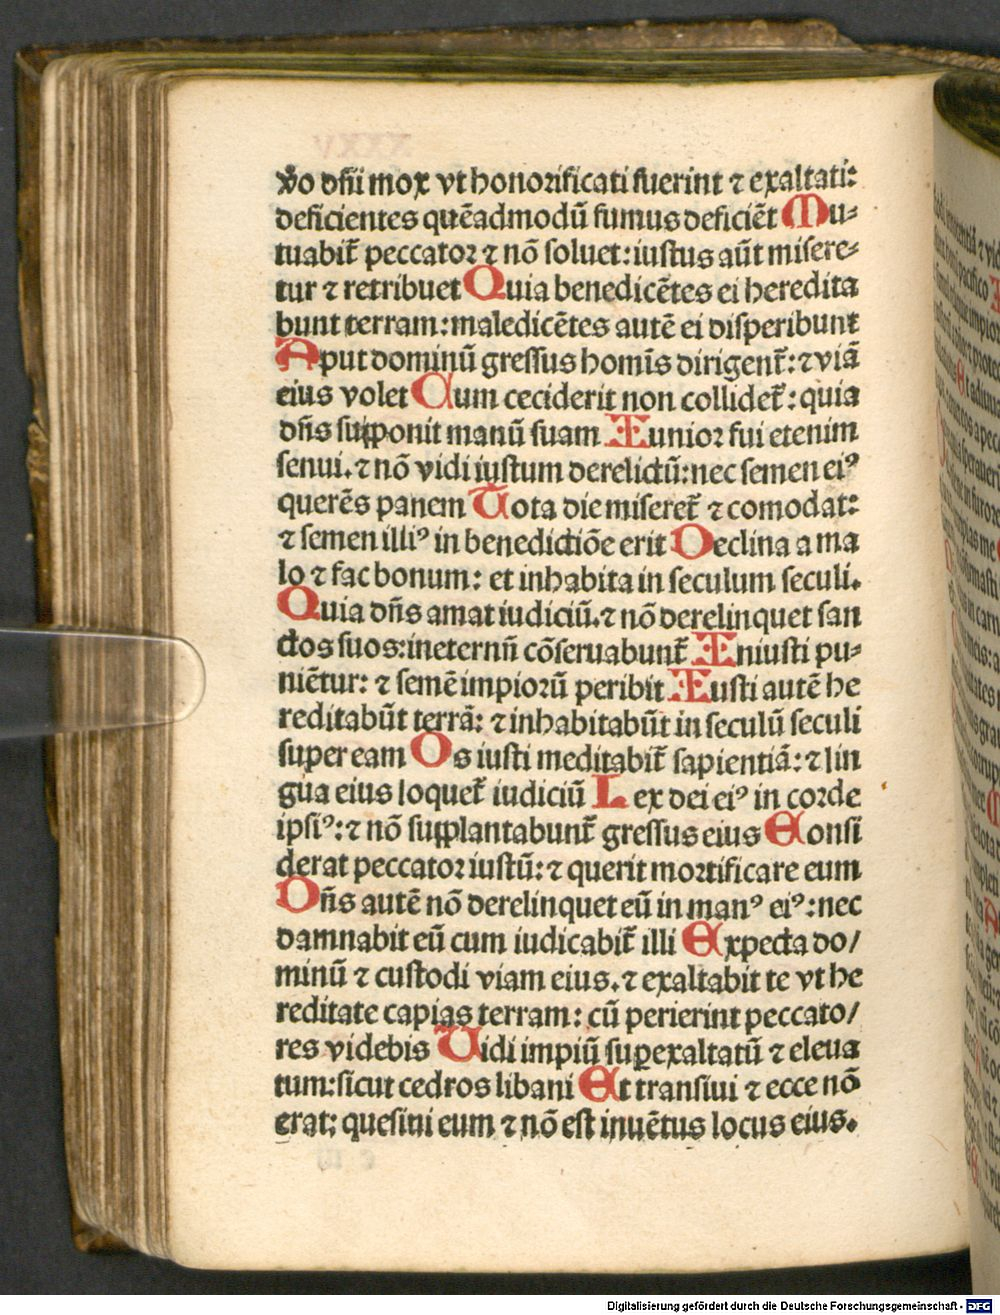 v̄o dn̄i mox vt honorificati fuerint ⁊ exaltati:
deficientes quēadmodū fumus deficiēt Mu⸗
tuabit̄ peccator ⁊ nō soluet: iustus aūt misere⸗
tur ⁊ retribuet Quia benedicētes ei heredita
bunt terram: maledicētes autē ei disperibunt
Aput dominū gressus homīs dirigent̄: ⁊ viā
eius volet Cum ceciderit non collidet̄: quia
dn̄s supponit manū suam Iunior fui etenim
senui. ⁊ nō vidi iustum derelictū: nec semen eiꝰ
querēs panem Tota die miseret̄ ⁊ comodat:
⁊ semen illiꝰ in benedictiōe erit Declina a ma
lo ⁊ fac bonum: et inhabita in seculum seculi.
Quia dn̄s amat iudiciū. ⁊ nō derelinquet san
ctos suos: ineternū cōseruabunt̄ Iniusti pu⸗
niētur: ⁊ semē impiorū peribit Iusti autē he
reditabūt terrā: ⁊ inhabitabūt in seculū seculi
super eam Os iusti meditabit̄ sapientiā: ⁊ lin
gua eius loquet̄ iudiciū Lex dei eiꝰ in corde
ipsiꝰ: ⁊ nō supplantabunt̄ gressus eius Consi
derat peccator iustū: ⁊ querit mortificare eum
Dn̄s autē nō derelinquet eū in manꝰ eiꝰ: nec
damnabit eū cum iudicabit̄ illi Expecta do/
minū ⁊ custodi viam eius. ⁊ exaltabit te vt he
reditate capias terram: cū perierint peccato/
res videbis Vidi impiū superexaltatū ⁊ eleua
tum: sicut cedros libani Et transiui ⁊ ecce nō
erat: quesiui eum ⁊ nō est inuētus locus eius.
Digitalisierung gefördert durch die Deutsche Forschungsgemeinschaft - DFG